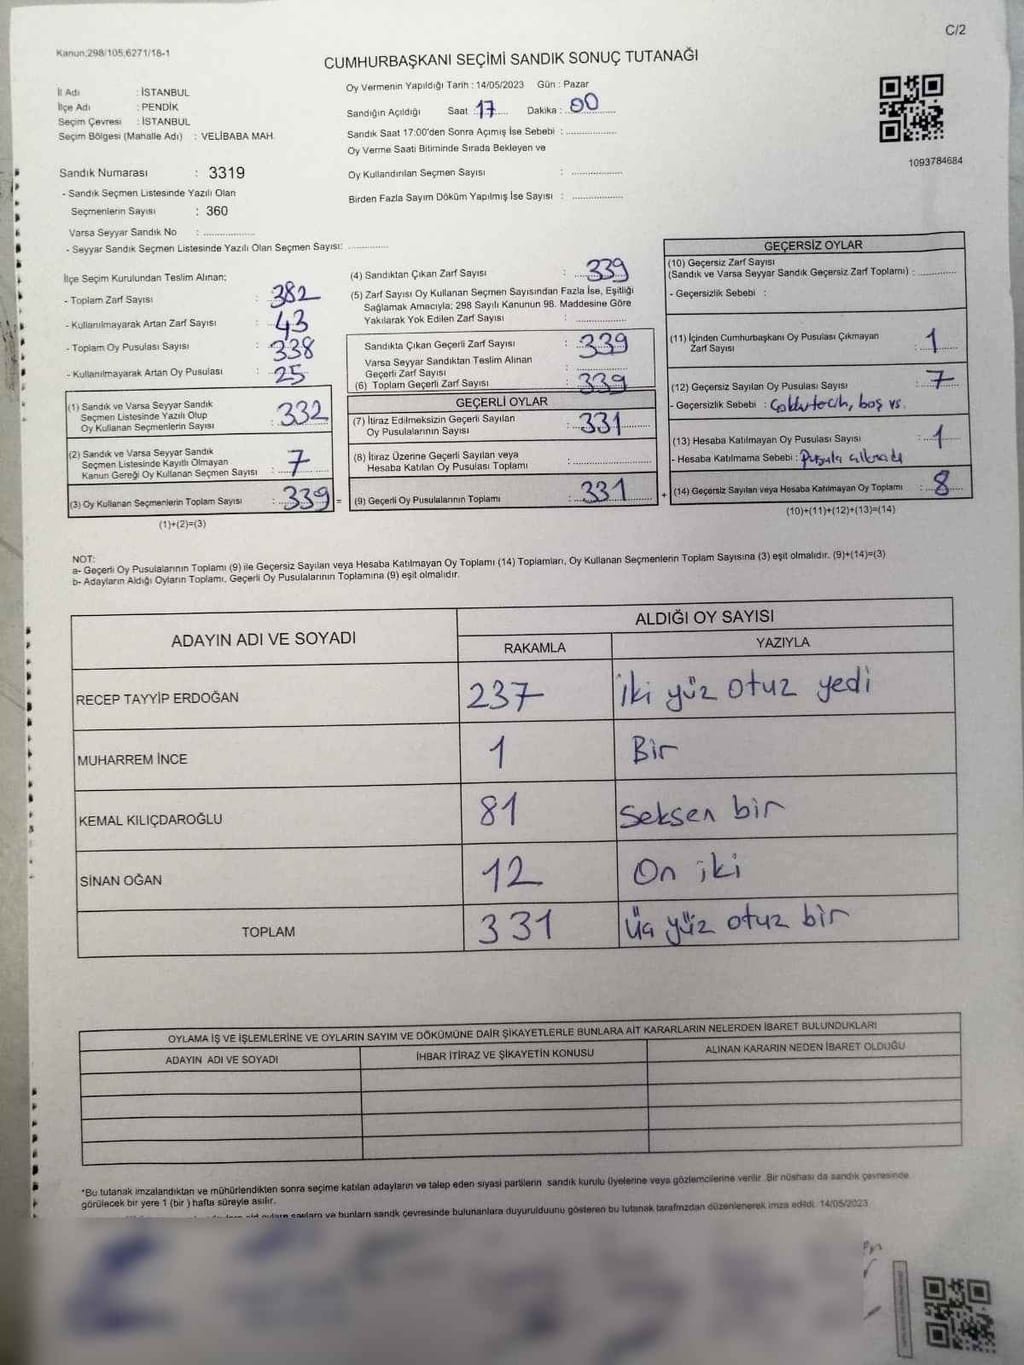 C/2
Kanun;298/105;6271/18-1
CUMHURBAŞKANI SEÇİMİ SANDIK SONUÇ TUTANAĞI
İl Adı : İSTANBUL
İlçe Adı : PENDİK
Seçim Çevresi : İSTANBUL
Seçim Bölgesi (Mahalle Adı) : VELİBABA MAH.
Oy Vermenin Yapıldığı Tarih : 14/05/2023 Gün : Pazar
Sandığın Açıldığı Saat : 17 Dakika : 00
Sandık Saat 17:00'den Sonra Açımış İse Sebebi :
Oy Verme Saati Bitiminde Sırada Bekleyen ve
Oy Kullandırılan Seçmen Sayısı :
Birden Fazla Sayım Döküm Yapılmış İse Sayısı :
1093784684
Sandık Numarası : 3319
- Sandık Seçmen Listesinde Yazılı Olan
Seçmenlerin Sayısı : 360
Varsa Seyyar Sandık No :
- Seyyar Sandık Seçmen Listesinde Yazılı Olan Seçmen Sayısı:
İlçe Seçim Kurulundan Teslim Alınan;
- Toplam Zarf Sayısı : 382
- Kullanılmayarak Artan Zarf Sayısı : 43
- Toplam Oy Pusulası Sayısı : 338
- Kullanılmayarak Artan Oy Pusulası : 25
(1) Sandık ve Varsa Seyyar Sandık
Seçmen Listesinde Yazılı Olup
Oy Kullanan Seçmenlerin Sayısı : 332
(2) Sandık ve Varsa Seyyar Sandık
Seçmen Listesinde Kayıtlı Olmayan
Kanun Gereği Oy Kullanan Seçmen Sayısı : 7
(3) Oy Kullanan Seçmenlerin Toplam Sayısı : 339 =
(1)+(2)=(3)
(4) Sandıktan Çıkan Zarf Sayısı : 339
(5) Zarf Sayısı Oy Kullanan Seçmen Sayısından Fazla İse, Eşitliği
Sağlamak Amacıyla; 298 Sayılı Kanunun 98. Maddesine Göre
Yakılarak Yok Edilen Zarf Sayısı :
Sandıkta Çıkan Geçerli Zarf Sayısı : 339
Varsa Seyyar Sandıktan Teslim Alınan
Geçerli Zarf Sayısı :
(6) Toplam Geçerli Zarf Sayısı : 339
GEÇERLİ OYLAR
(7) İtiraz Edilmeksizin Geçerli Sayılan
Oy Pusulalarının Sayısı : 331
(8) İtiraz Üzerine Geçerli Sayılan veya
Hesaba Katılan Oy Pusulası Toplamı :
(9) Geçerli Oy Pusulalarının Toplamı : 331 +
GEÇERSİZ OYLAR
(10) Geçersiz Zarf Sayısı
(Sandık ve Varsa Seyyar Sandık Geçersiz Zarf Toplamı) :
- Geçersizlik Sebebi :
(11) İçinden Cumhurbaşkanı Oy Pusulası Çıkmayan
Zarf Sayısı : 1
(12) Geçersiz Sayılan Oy Pusulası Sayısı : 7
- Geçersizlik Sebebi : boş vs.
(13) Hesaba Katılmayan Oy Pusulası Sayısı : 1
- Hesaba Katılmama Sebebi : Pusula
(14) Geçersiz Sayılan veya Hesaba Katılmayan Oy Toplamı : 8
(10)+(11)+(12)+(13)=(14)
NOT:
a- Geçerli Oy Pusulalarının Toplamı (9) ile Geçersiz Sayılan veya Hesaba Katılmayan Oy Toplamı (14) Toplamları, Oy Kullanan Seçmenlerin Toplam Sayısına (3) eşit olmalıdır. (9)+(14)=(3)
b- Adayların Aldığı Oyların Toplamı, Geçerli Oy Pusulalarının Toplamına (9) eşit olmalıdır.
ADAYIN ADI VE SOYADI
ALDIĞI OY SAYISI
RAKAMLA YAZIYLA
RECEP TAYYİP ERDOĞAN 237 iki yüz otuz yedi
MUHARREM İNCE 1 Bir
KEMAL KILIÇDAROĞLU 81 Seksen bir
SİNAN OĞAN 12 On iki
TOPLAM 331 Üç yüz otuz bir
OYLAMA İŞ VE İŞLEMLERİNE VE OYLARIN SAYIM VE DÖKÜMÜNE DAİR ŞİKAYETLERLE BUNLARA AİT KARARLARIN NELERDEN İBARET BULUNDUKLARI
ADAYIN ADI VE SOYADI İHBAR İTİRAZ VE ŞİKAYETİN KONUSU ALINAN KARARIN NEDEN İBARET OLDUĞU
*Bu tutanak imzalandıktan ve mühürlendikten sonra seçime katılan adayların ve talep eden siyasi partilerin sandık kurulu üyelerine veya gözlemcilerine verilir. Bir nüshası da sandık çevresinde
görülecek bir yere 1 (bir ) hafta süreyle asılır.
sandık çevresinde bulunanlara duyurulduunu gösteren bu tutanak tarafımızdan düzenlenerek imza edildi. 14/05/2023